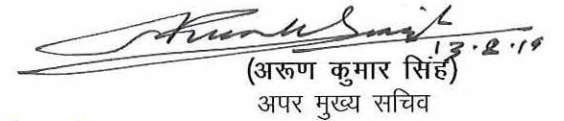 13.8.19
(अरूण कुमार सिंह)
अपर मुख्य सचिव